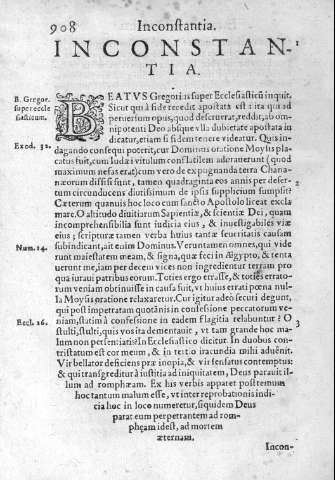 908 Inconstantia.
INCONSTAN-
TIA.
1
B. Gregor. super eccle siasticum.
BEATVS Gregorius super Ecclesiasticũ inquit.
Sicut qui à fide recedit apostata est: ita qui ad
peruersum opus, quod deseruerat, reddit, ab om-
nipotenti Deo absque vlla dubietate apostata in
dicatur, etiam si fidem tenere videatur. Quis in-
Exod. 32.
dagando consequi poterit, cur Dominus oratione Moysis pla
catus fuit, cum Iudæi vitulum conflatilem adorauerunt (quod
maximum nefas erat) cum vero de expugnanda terra Chana-
næorum diffisi sunt, tamen quadraginta eos annis per deser-
2
tum circunducens diutissimum de ipsis supplicium sumpsit?
Cæterum quanuis hoc loco cum sancto Apostolo liceat excla
mare. O altitudo diuitiarum Sapientiæ, & scientiæ Dei, quam
incomprehensibilia sunt iudicia eius, & inuestigabiles viæ
eius; scripturæ tamen verba huius tantæ seueritatis causam
subindicant, ait enim Dominus. Veruntamen omnes, qui vide
Num. 14.
runt maiestatem meam, & signa, quæ feci in Ægypto, & tenta
uerunt me, iam per decem vices non ingredientur terram pro
qua iuraui patribus eorum. Toties ergo errasse, & toties errato-
rum veniam obtinuisse in causa fuit, vt huius errati pœna nul-
la Moysis oratione relaxaretur. Cur igitur adeò securi degunt,
qui post impetratam quotānis in confessione peccatorum ve-
Eccl. 26.
niam, statim à confessione in eadem flagitia relabuntur? O
3
stulti, stulti, quis vos ita dementauit, vt tam grande hoc ma-
lum non persentiatis? In Ecclesiastico dicitur. In duobus con-
tristatum est cor meum, & in tertio iracundia mihi aduênit.
Vir bellator deficiens præ inopia, & vir sensatus contemptus:
& qui transgreditur à iustitia ad iniquitatem, Deus parauit il-
lum ad romphæam. Ex his verbis apparet postremum
hoc tantum malum esse, vt inter reprobationis ind-
icia hoc in loco numeretur, siquidem Deus
parat eum perpetrantem ad rom-
phęam idest, ad mortem
æternam.
Incon-